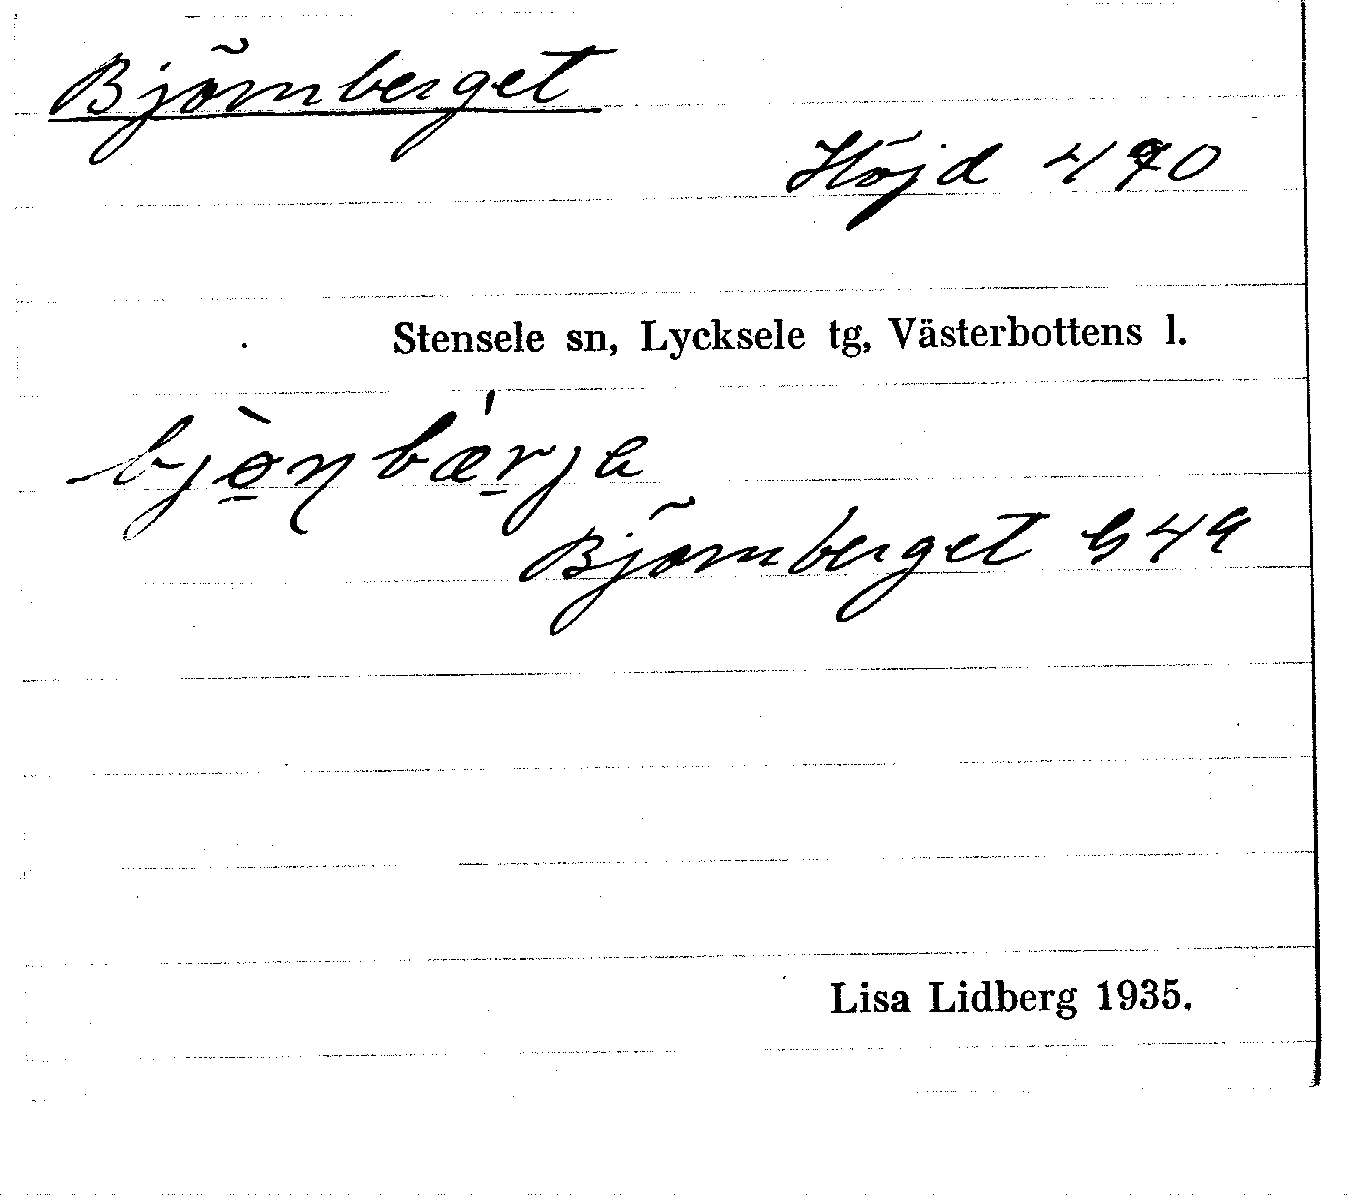 Björnberget
Höjd 490
Stensele sn, Lycksele tg, Västerbottens l.
Björnberget G4a
Lisa Lidberg 1935.